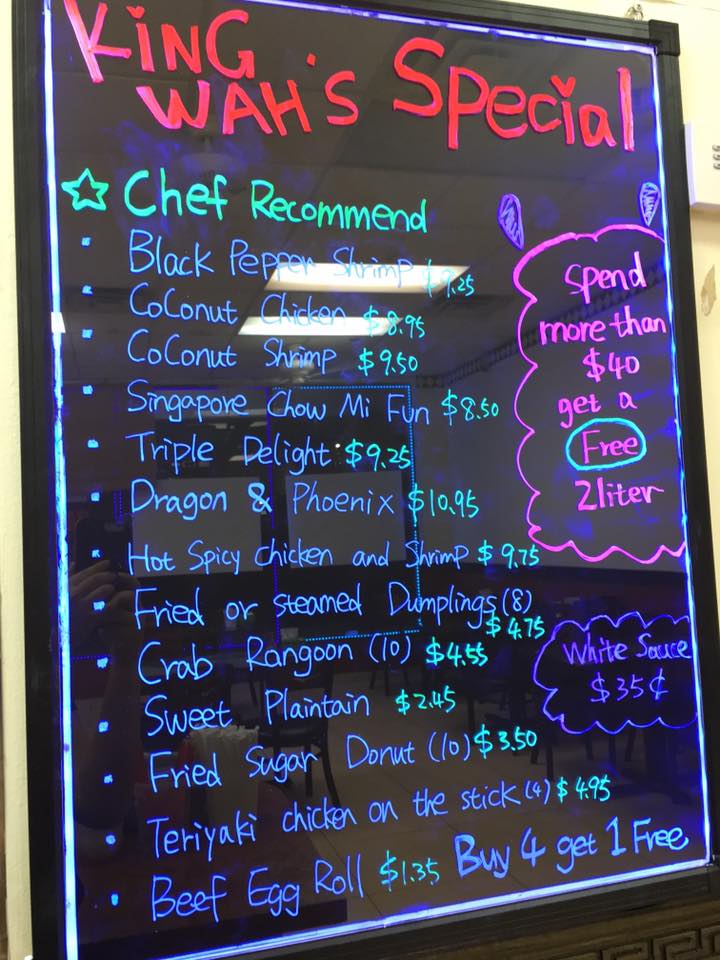 KiNG WAH'S Special
Chef Recommend
Black Pepper Shrimp $9.25
CoConut Chicken $8.95
CoConut Shrimp $9.50
Singapore Chow Mi Fun $8.50
Triple Delight $9.25
Dragon & Phoenix $10.95
Hot Spicy chicken and Shrimp $9.75
Fried or steamed Dumplings (8)
$4.75
Crab Rangoon (10) $4.55
Sweet Plaintain $2.45
Fried Sugar Donut (10) $3.50
Teriyaki chicken on the stick (4) $4.95
Beef Egg Roll $1.35 Buy 4 get 1 Free
Spend
more than
$40
get a
Free
2liter
White Sauce
$35¢